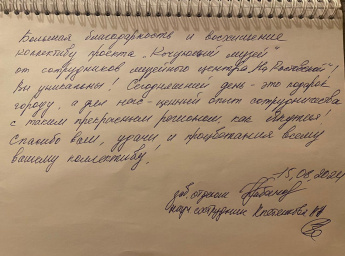 Большая благодарность и восхищение
коллективу проекта „Кочующий музей“
от сотрудников музейного центра „На
Вы уникальны! Сегодняшний день - это подарок
городу, а для нас - ценный опыт сотрудничества
с таким прекрасным регионом, как
Спасибо вам, удачи и процветания всему
вашему коллективу!
15.08.2024
зав. отделом
науч. сотрудник